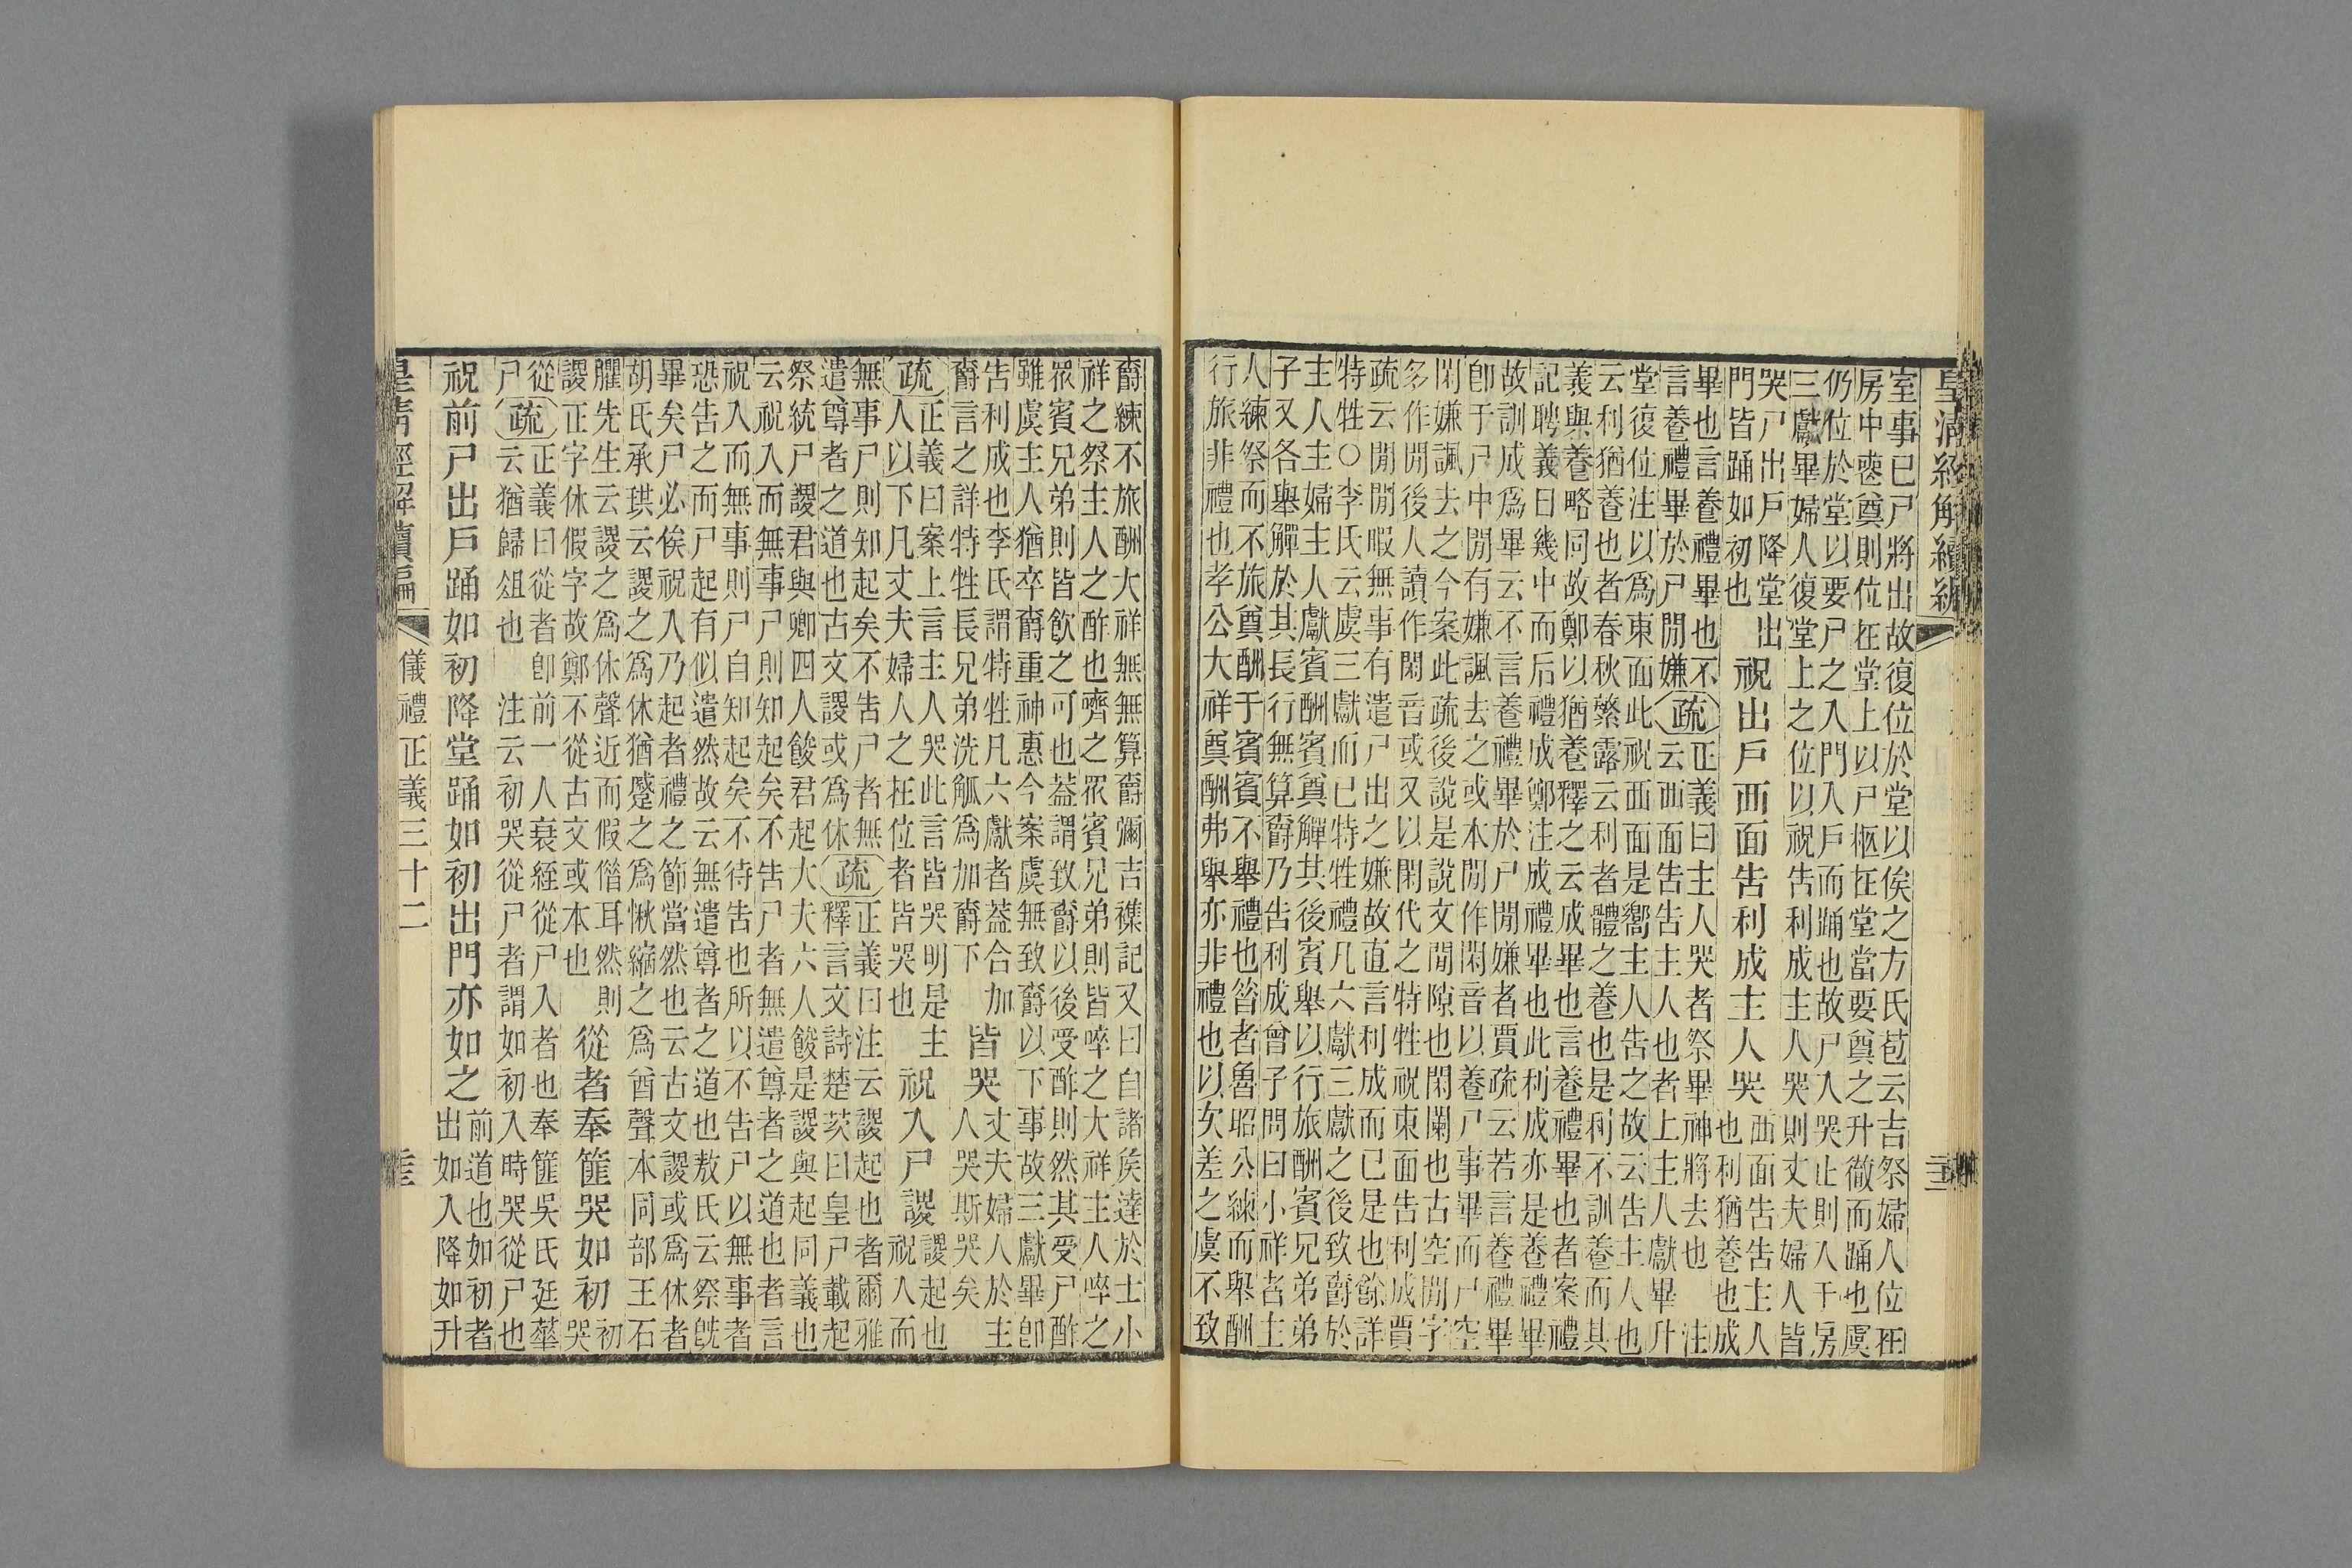 皇清經解續編
室事已尸將出故復位於堂以俟之方氏苞云吉祭婦人位在
房中喪奠則位在堂上以尸柩在堂當要奠之升徹而踊也虞
仍位於堂以要尸之入門入戶而踊也故尸入哭止則人于房
三獻畢婦人復堂上之位以祝告利成主人哭則丈夫婦人皆
哭尸出戶降堂出
門皆踊如初也
祝出戶西面告利成主人哭
西面告告主人
也利猶養也成
畢也言養禮畢也不
言養禮畢於尸閒嫌
疏
正義曰主人哭者祭畢神將去也 注
云西面告告主人也者上主人獻畢升
堂復位注以爲東面此祝西面是嚮主人告之故云告主人也
云利猶養也者春秋繁露云利者體之養也是利不訓養而其
義與養略同故鄭以猶養釋之云成畢也言養禮畢也者案禮
記聘義曰幾中而后禮成鄭注成禮畢也此利成亦是養禮畢
故訓成爲畢云不言養禮畢於尸閒嫌者賈疏云若言養禮畢
卽于尸中閒有嫌諷去之或本閒作閑音以養尸事畢而尸空
閑嫌諷去之今案此疏後說是說文閒隙也閑闌也古空閒字
多作閒後人讀作閑音或又以閑代之特牲祝東面告利成賈
疏云閒閒暇無事有遣尸出之嫌故直言利成而已是也餘詳
特牲○李氏云虞三獻而已特牲禮凡六獻三獻之後致爵於
主人主婦主人獻賓酬賓奠觶其後賓舉以行旅酬賓兄弟弟
子又各舉觶於其長行無算爵乃告利成曾子問曰小祥者主
人練祭而不旅奠酬于賓賓不舉禮也昝者魯昭公練而舉酬
行旅非禮也孝公大祥奠酬弗舉亦非禮也以次差之虞不致
爵練不旅酬大祥無無算爵彌吉襍記又曰自諸侯達於士小
祥之祭主人之酢也嚌之眾賓兄弟則皆啐之大祥主人啐之
眾賓兄弟則皆飲之可也葢謂致爵以後受酢則然其受尸酢
雖虞主人猶卒爵重神惠今案虞無致爵以下事故三獻畢卽
告利成也李氏謂特牲凡六獻者葢合加
爵言之詳特牲長兄弟洗觚爲加爵下
皆哭
丈夫婦人於主
人哭斯哭矣
疏
正義曰案上言主人哭此言皆哭明是主
人以下凡丈夫婦人之在位者皆哭也
祝入尸謖
謖起也
祝入而
無事尸則知起矣不告尸者無
遣尊者之道也古文謖或爲休
疏
正義曰注云謖起也者爾雅
釋言文詩楚茨曰皇尸載起
祭統尸謖君與卿四人餕君起大夫六人餕是謖與起同義也
云祝入而無事尸則知起矣不告尸者無遣尊者之道也者言
祝入而無事則尸自知起矣不待告也所以不告尸以無事者
恐告之而尸起有似遣然故云無遣尊者之道也敖氏云祭旣
畢矣尸必俟祝入乃起者禮之節當然也云古文謖或爲休者
胡氏承珙云謖之爲休猶蹙之爲愀縮之爲酋聲本同部王石
臞先生云謖之爲休聲近而假僭耳然則
謖正字休假字故鄭不從古文或本也
從者奉篚哭如初
初
哭
從
尸
疏
正義曰從者卽前一人衰絰從尸入者也奉篚吳氏廷華
云猶歸俎也 注云初哭從尸者謂如初入時哭從尸也
祝前尸出戶踊如初降堂踊如初出門亦如之
前道也如初者
出如入降如升
皇清經解續編 儀禮正義三十二